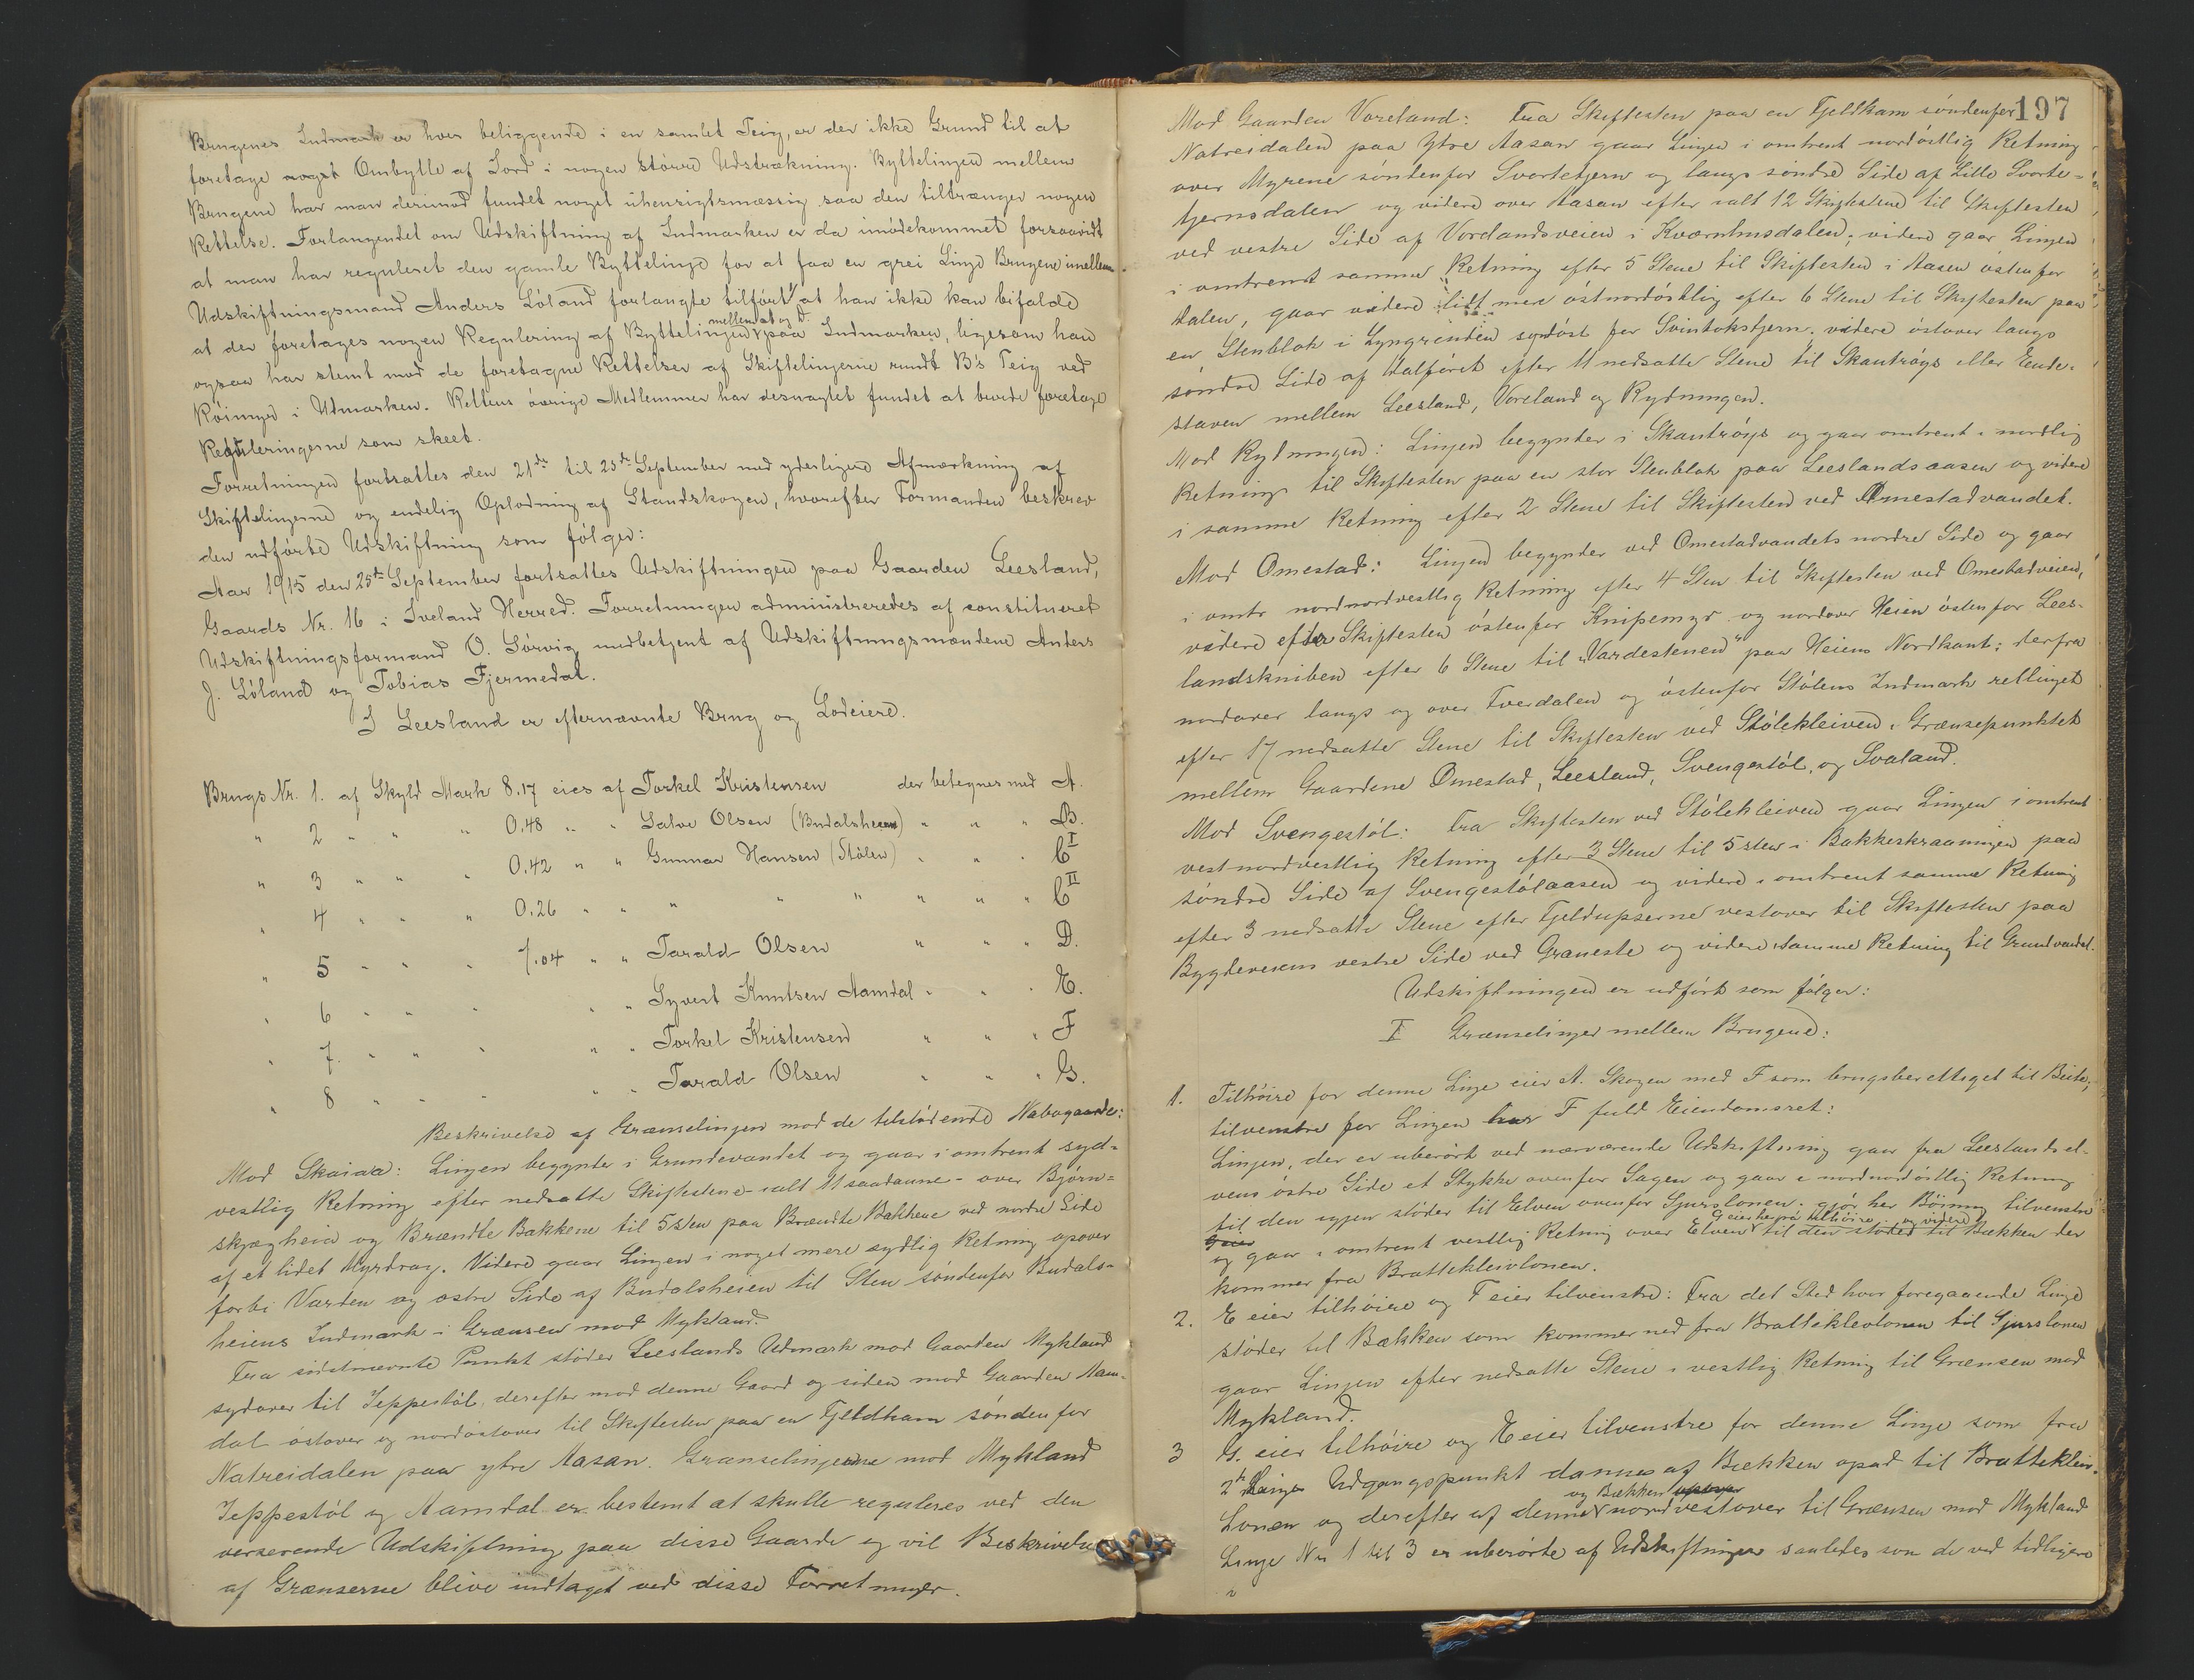 Brugenes Indmark er hver beliggende i en samlet Teig, er der ikke Grund til at
foretage noget Ombytte af Jord i nogen større Udstrækning. Byttelinjen mellem
Brugene har man derimod fundet noget uhensigtsmæssig saa den tiltrænger nogen
Rettelse. Forlangendet om Udskiftning af Indmarken er da imødekommet forsaavidt
at man har reguleret den gamle Byttelinje for at faa en grei Linje Brugene imellem.
Udskiftningsmand Anders Löland forlangte tilført, at han ikke kan bifalde
at der foretages nogen Regulering af Byttelinjen mellem A og D. paa Indmarken, ligesom han
ogsaa har stemt mod de foretagne Rettelser af Skiftelinjerne rundt B's Teig ved
Röimyr i Utmarken. Rettens øvrige Medlemmer har desuagtet fundet at burde foretage
Reguleringerne som skeet.
Forretningen fortsattes den 21de til 25de September med yderligere Afmærkning af
Skiftelinjerne og endelig Oplodning af Standskogen, hvorefter Formanden beskrev
den udførte Udskiftning som følger:
Aar 1915 den 25de September fortsattes Udskiftningen paa Gaarden Leesland,
Gaards Nr. 16 i Iveland Herred. Forretningen administreredes af constitueret
Udskiftningsformand O. Sørvig medbetjent af Udskiftningsmændene Anders
J. Löland og Tobias Fjermedal.
I Leesland er efternævnte Brug og Lodeiere.
Brugs Nr. 1. af Skyld Mark 8.17 eies af Torkel Kristensen der betegnes med A.
" 2 " " " 0.48 " " Salve Olsen (Budalsheien) " " " B.
" 3 " " " 0.42 " " Gunnar Hansen (Stölen) " " " C I
" 4 " " " 0.26 " " " " " " " C II
" 5 " " " 7.04 " " Tarald Olsen " " " D.
" 6 " " " " " Syvert Knutsen Aamdal " " " E.
" 7. " " " " " Torkel Kristensen " " " F
" 8 " " " " " Tarald Olsen " " " G.
Beskrivelse af Grænselinjen mod de tilstødende Nabogaarde:
Mod Skaiaa: Linjen begynder i Grundevandet og gaar i omtrent syd-
vestlig Retning efter nedsatte Skiftestene - ialt 11 saadanne - over Bjørn-
skjægheia og Brændte Bakkene til 5 Sten paa Brændte Bakkene ved nordre Side
af et lidet Myrdrag. Videre gaar Linjen i noget mere sydlig Retning opover
forbi Varden og østre Side af Budalsheien til Sten søndenfor Budals-
heiens Indmark i Grænsen mod Mykland.
Fra sidstnævnte Punkt støder Leeslands Udmark mod Gaarden Mykland
sydover til Jeppestöl, derefter mod denne Gaard og siden mod Gaarden Aam-
dal østover og nordøstover til Skiftesten paa en Fjeldkam søndenfor
Natreidalen paa ytre Aasan. Grænselinjerne mod Mykland
Jeppestöl og Aamdal er bestemt at skulle reguleres ved den
verserende Udskiftning paa disse Gaarde og vil Beskrivelse
af Grænserne blive indtaget ved disse Forretninger.
197
Mod Gaarden Voreland: Fra Skiftesten paa en Fjeldkam søndenfor
Natreidalen paa Ytre Aasan gaar Linjen i omtrent nordøstlig Retning
over Myrene søndenfor Svartetjern og langs søndre Side af Lille Svarte-
tjernsdalen og videre over Aasan efter ialt 12 Skiftestene til Skiftesten
ved vestre Side af Vorelandsveien i Kværnhusdalen; videre gaar Linjen
i omtrent samme Retning efter 5 Stene til Skiftesten i Aasen østenfor
Dalen, gaar videre lidt mere østnordøstlig efter 6 Stene til Skiftesten paa
en Stenblok i Lyngrinden sydøst for Svintokstjern. videre østover langs
søndre Side af Dalføret efter 11 nedsatte Stene til Skautröys eller Ende-
staven mellem Leesland, Voreland og Rydningen.
Mod Rydningen: Linjen begynder i Skautröys og gaar omtrent i nordlig
Retning til Skiftesten paa en stor Stenblok paa Leeslandsaasen og videre
i samme Retning efter 2 Stene til Skiftesten ved Omestadvandet.
Mod Omestad: Linjen begynder ved Omestadvandets nordre Side og gaar
i omtr nordnordvestlig Retning efter 4 Sten til Skiftesten ved Omestadveien,
videre efter Skiftesten østenfor Knipemyr og nordover Heien østenfor Lees-
landskniben efter 6 Stene til "Vardestenen" paa Heiens Nordkant; derfra
nordover langs og over Tverdalen og østenfor Stölens Indmark retlinjet
efter 17 nedsatte Stene til Skiftesten ved Stölekleiven, Grænsepunktet
mellem Gaardene Omestad, Leesland, Svengestöl, og Svaland.
Mod Svengestöl: Fra Skiftesten ved Stölekleiven gaar Linjen i omtrent
vestnordvestlig Retning efter 3 Stene til 5 sten i Bakkeskraaningen paa
søndre Side af Svengestölaasen og videre i omtrent samme Retning
efter 3 nedsatte Stene efter Fjeldupserne vestover til Skiftesten paa
Bygdeveiens vestre Side ved Graneste og videre samme Retning til Grundvandet.
Udskiftningen er udført som følger:
I Grænselinjer mellem Brugene:
1. Tilhøire for denne Linje eier A. Skogen med F som brugsberettiget til Beite;
tilvenstre for Linjen har F fuld Eiendomsret:
Linjen, der er uberørt ved nærværende Udskiftning gaar fra Leeslandsel-
vens østre Side et Stykke ovenfor Sagen og gaar i nordnordøstlig Retning
til den igjen støder til Elven ovenfor Gjurslonen. gjør her Böining tilvenstre
og gaar i omtrent vestlig Retning over Elven G eier herfra tilhøire og videre til den støder til Bækken der
kommer fra Brattekleivlonen.
2. E eier tilhøire og F eier tilvenstre: Fra det Sted hvor foregaaende Linje
støder til Bækken som kommer ned fra Brattekleivlonen til Gjurslonen
gaar Linjen efter nedsatte Stene i vestlig Retning til Grænsen mod
Mykland.
3 G. eier tilhøire og E eier tilvenstre for denne Linje som fra
2den Linjes Udgangspunkt dannes af Bækken opad til Brattekleiv-
Lonen og derefter af denne og Bækken nordvestover til Grænsen mod Mykland
Linje Nr 1 til 3 er uberørte af Udskiftningen saaledes som de ved tidligere